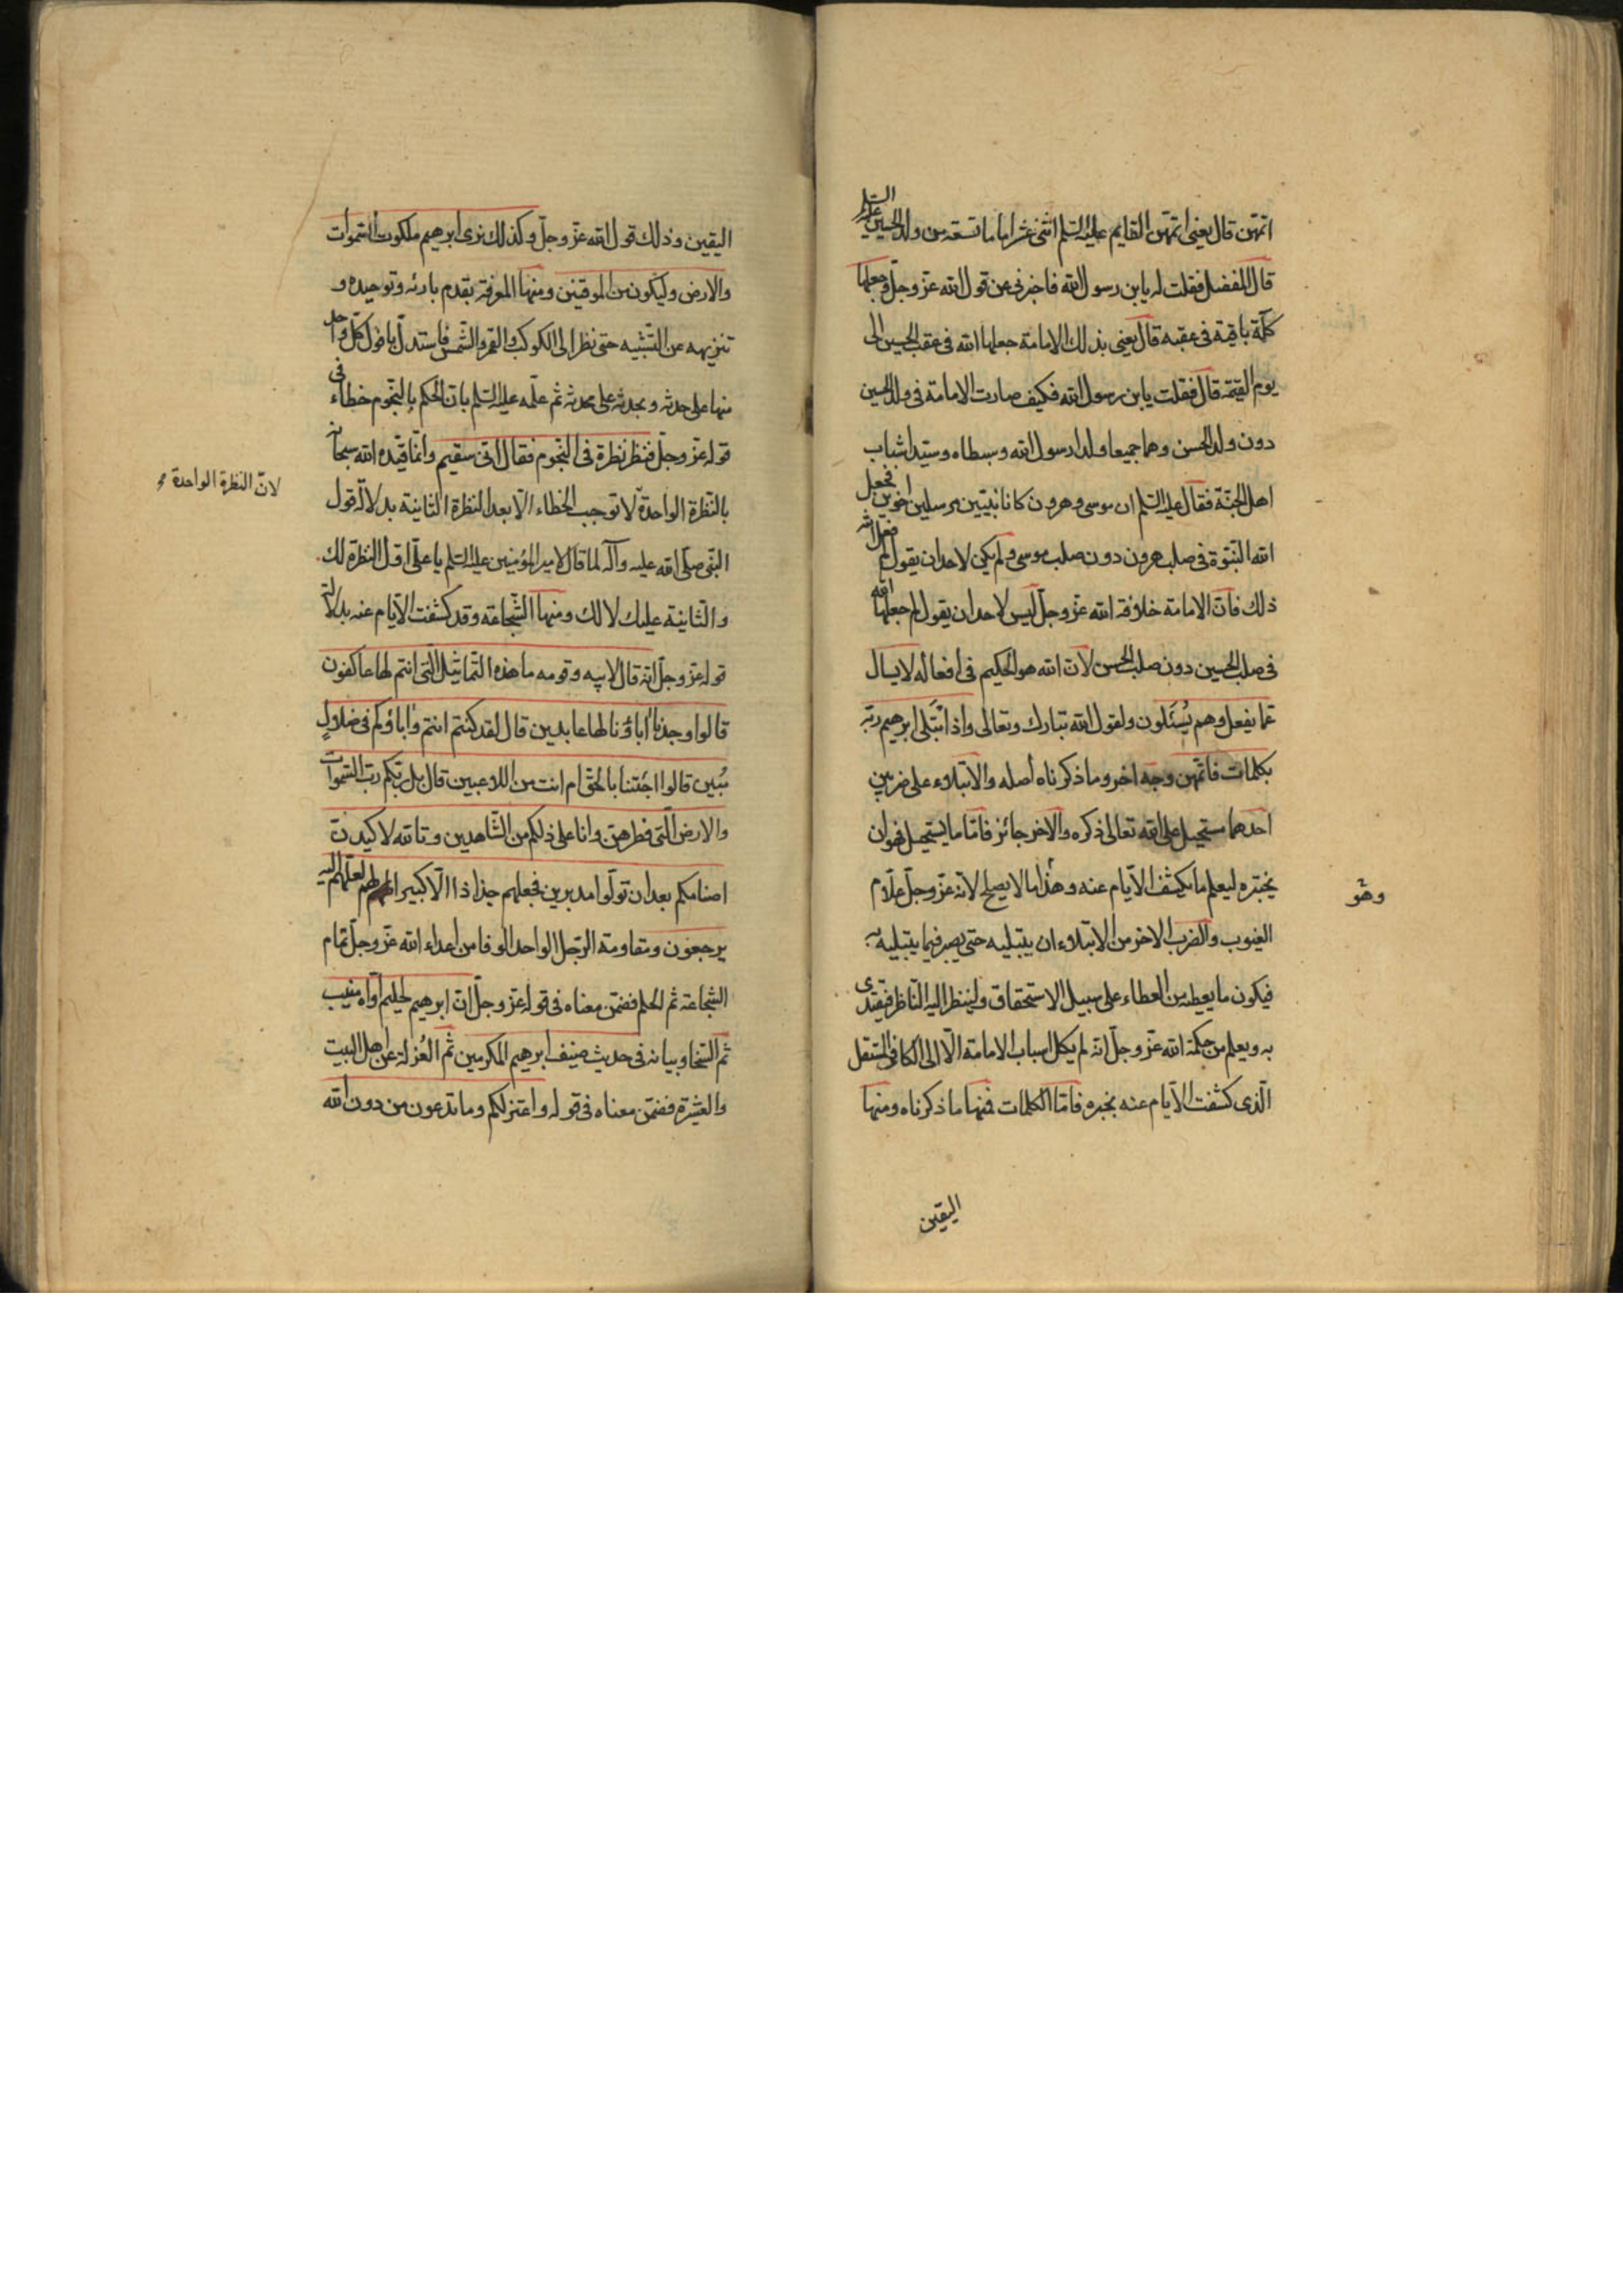 اتمهن قال يعنى اتمهن الى القايم عليه السلم اثنى عشر اماما تسعة من ولد الحسين عليه السلم
قال المفضل فقلت له يابن رسول الله فاخبرنى عن قول الله عز وجل وجعلها
كلمة باقية فى عقبه قال يعنى بذلك الامامة جعلها الله فى عقب الحسين الى
يوم القيمة قال فقلت يابن رسول الله فكيف صارت الامامة فى ولد الحسين
دون ولد الحسن وهما جميعا ولدا رسول الله وسبطاه وسيدا شباب
اهل الجنة فقال عليه السلم ان موسى وهرون كانا نبيين مرسلين اخوين فجعل
الله النبوة فى صلب هرون دون صلب موسى ولم يكن لاحد ان يقول لم فعل الله
ذلك فان الامامة خلافة الله عز وجل ليس لاحد ان يقول لم جعلها الله
فى صلب الحسين دون صلب الحسن لان الله هو الحكيم فى افعاله لا يسال
عما يفعل وهم يُسئَلون ولقول الله تبارك وتعالى واذ ابتلى ابرهيم ربه
بكلمات فاتمهن وجه اخر وما ذكرناه اصله والابتلاء على ضربين
احدهما مستحيل على الله تعالى ذكره والاخر جائز فاما ما يستحيل فهو ان
يختبره ليعلم ما تكشف الايام عنه وهذا ما لا يصلح لانه عز وجل علام
وهو
الغيوب والضرب الاخر من الابتلاء ان يبتليه حتى يصبر فيما يبتليه به
فيكون ما يعطيه من العطاء على سبيل الاستحقاق ولينظر اليه الناظر فيقتدى
به ويعلم من حكمة الله عز وجل انه لم يكل اسباب الامامة الا الى الكافى المستقل
الذى كشفت الايام عنه بخبره فاما الكلمات فمنها ما ذكرناه ومنها
اليقين
اليقين وذلك قول الله عز وجل وكذلك نرى ابرهيم ملكوت السموات
والارض وليكون من الموقنين ومنها المعرفة بقدم بارئه وتوحيده و
تنزيهه عن التشبيه حتى نظر الى الكوكب والقمر والشمس فاستدل بافول كل واحد
منها على حدثه وبحدثه على محدثه ثم علمه عليه السلم بان الحكم بالنجوم خطاء فى
قوله عز وجل فنظر نظرة فى النجوم فقال انى سقيم وانما قيده الله سبحانه
لان النظرة الواحدة
بالنظرة الواحدة لا توجب الخطاء الا بعد النظرة الثانية بدلالة قول
النبى صلى الله عليه وآله لما قال لامير المؤمنين عليه السلم يا على اول النظرة لك
والثانية عليك لا لك ومنها الشجاعة وقد كشفت الايام عنه بدلالة
قوله عز وجل انه قال لابيه وقومه ما هذه التماثيل التى انتم لها عاكفون
قالوا وجدنا اباؤنا لها عابدين قال لقد كنتم انتم واباؤكم فى ضلال
مُبين قالوا اجئتنا بالحق ام انت من اللاعبين قال بل ربكم رب السموات
والارض التى فطرهن وانا على ذلكم من الشاهدين وتالله لاكيدن
اصنامكم بعد ان تولوا مدبرين فجعلهم جذاذا الا كبيرا لهم لعلهم اليه
يرجعون ومقاومة الرجل الواحد الوفا من اعداء الله عز وجل تمام
الشجاعة ثم الحلم فضمن معناه فى قوله عز وجل ان ابرهيم لحليم اواه منيب
ثم السخا وبيانه فى حديث ضيف ابرهيم المكرمين ثم العُزلة عن اهل البيت
والعشيرة فضمن معناه فى قوله واعتزلكم وما تدعون من دون الله